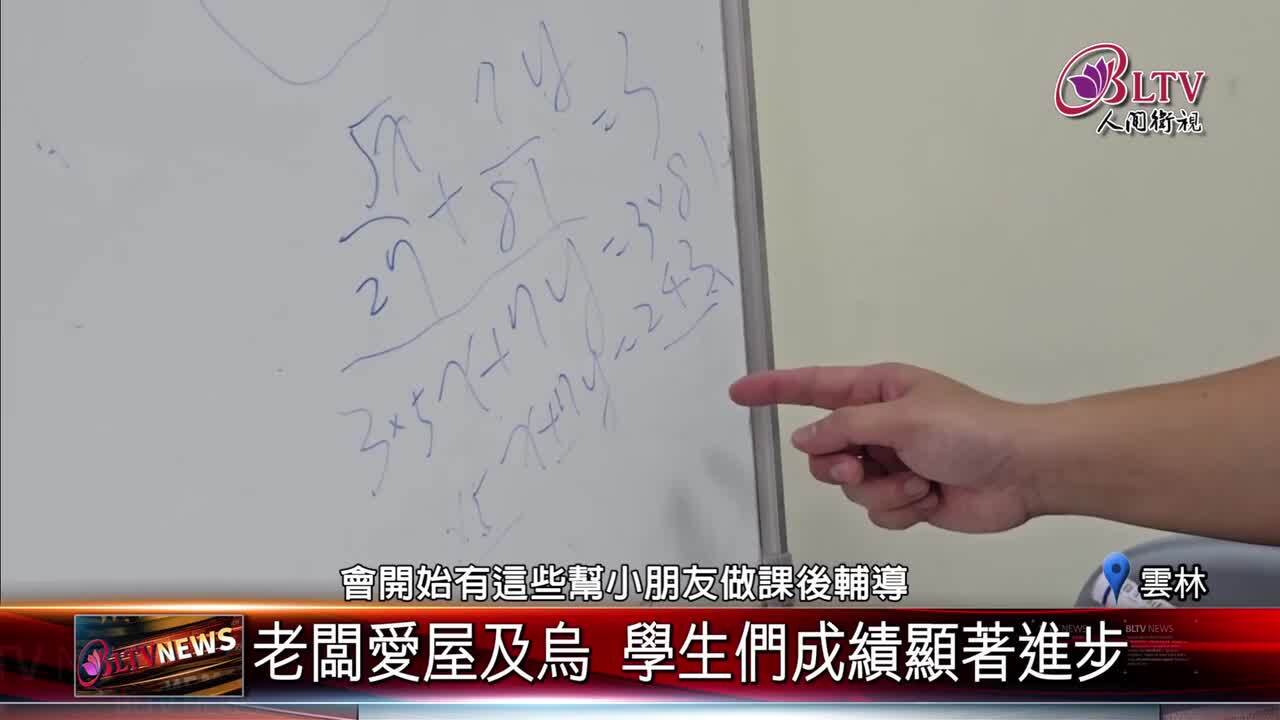 BLTV
人間衛視
5x/27 + 7y/81 = 3
3×5x+7y = 3×81
15x+7y = 243
會開始有這些幫小朋友做課後輔導
雲林
BLTVNEWS
老闆愛屋及烏 學生們成績顯著進步
BLTV NEWS